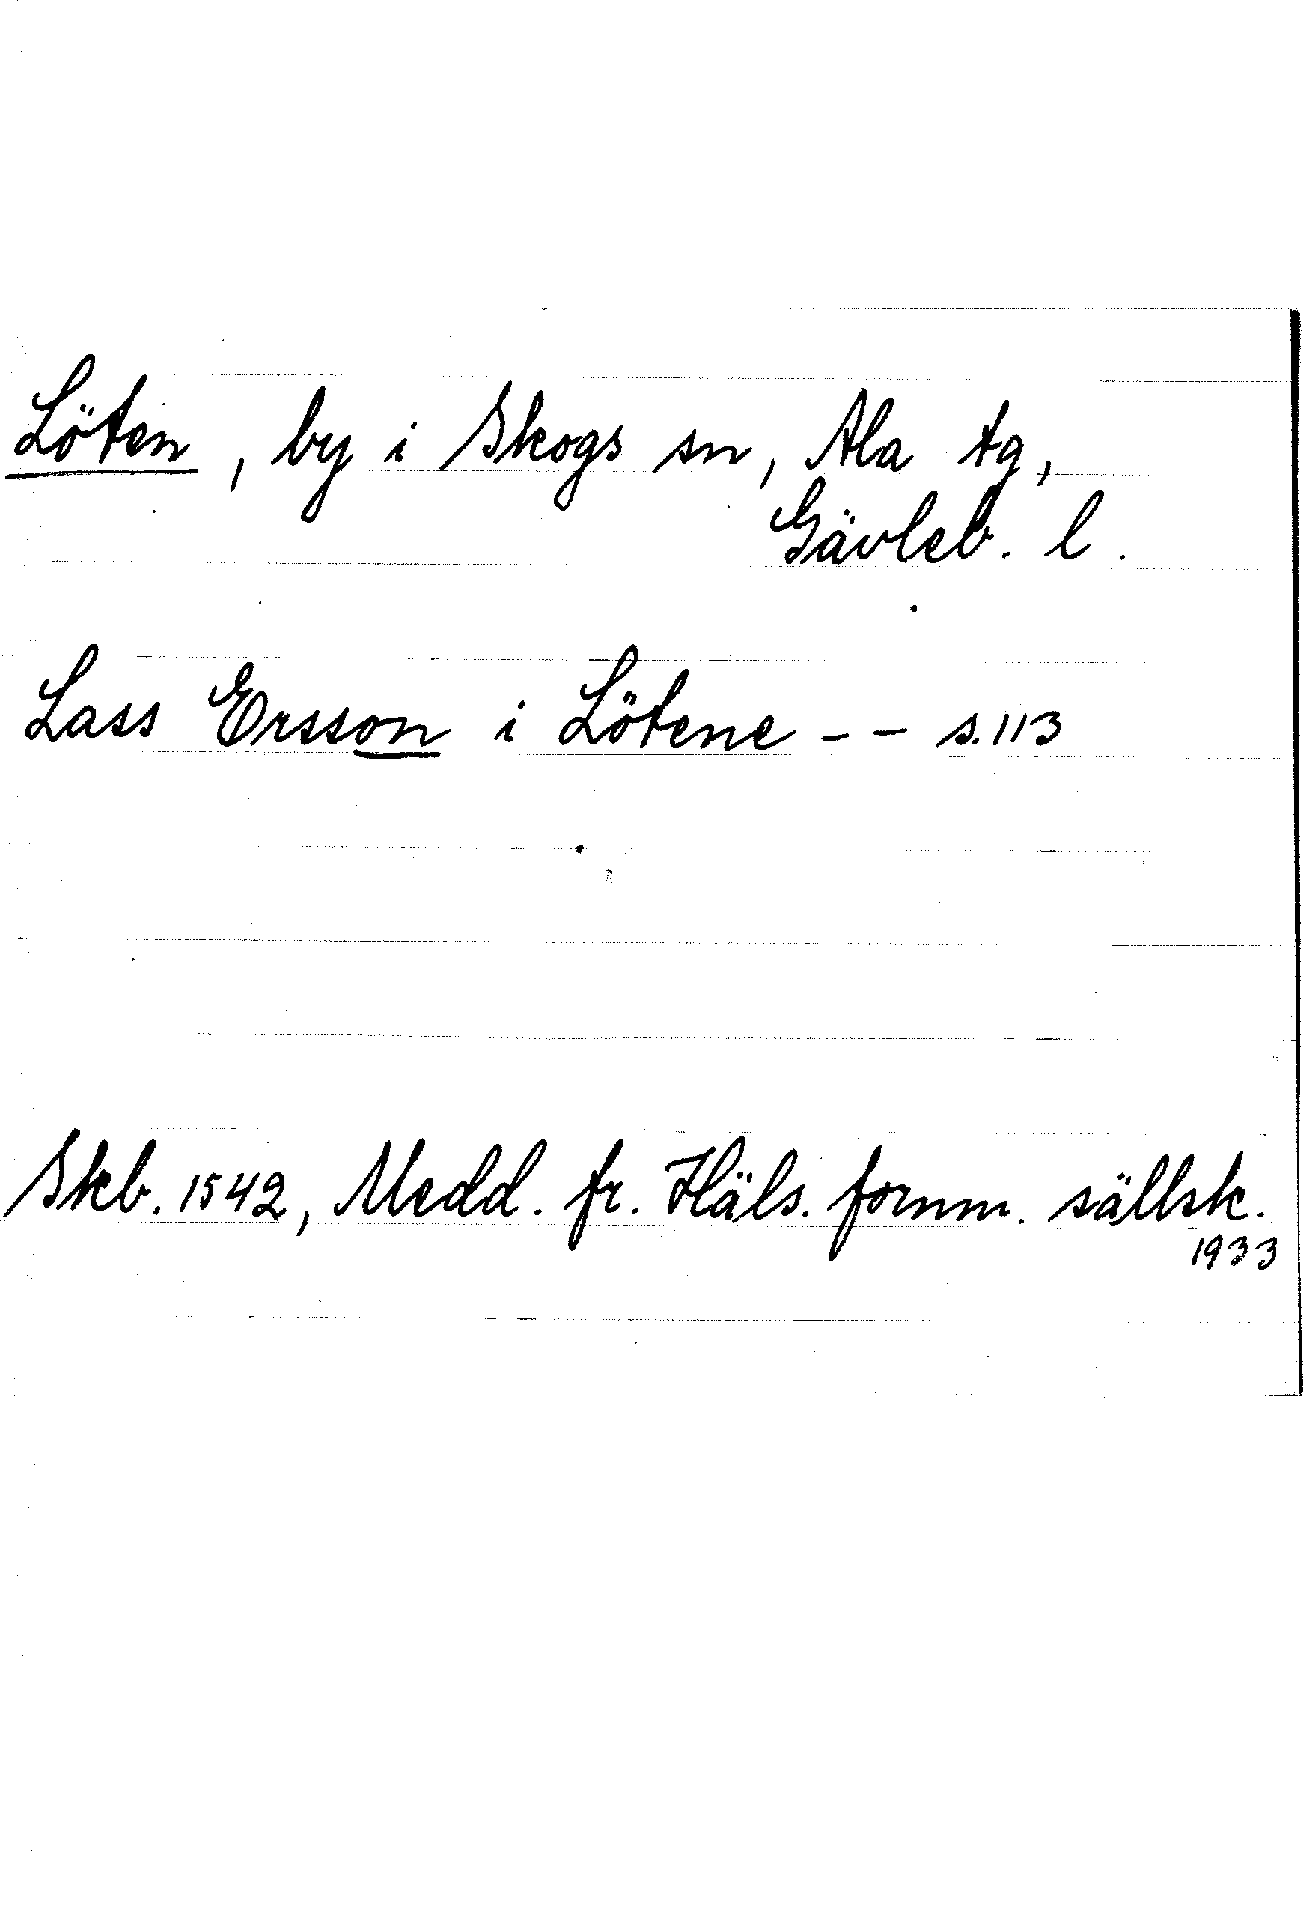 Löten, by i Skogs sn, Ala tg,
Gävleb. l.
Lass Ersson i Lötene -- s. 113
Skb. 1542, Medd. fr. Häls. fornm. sällsk.
1933